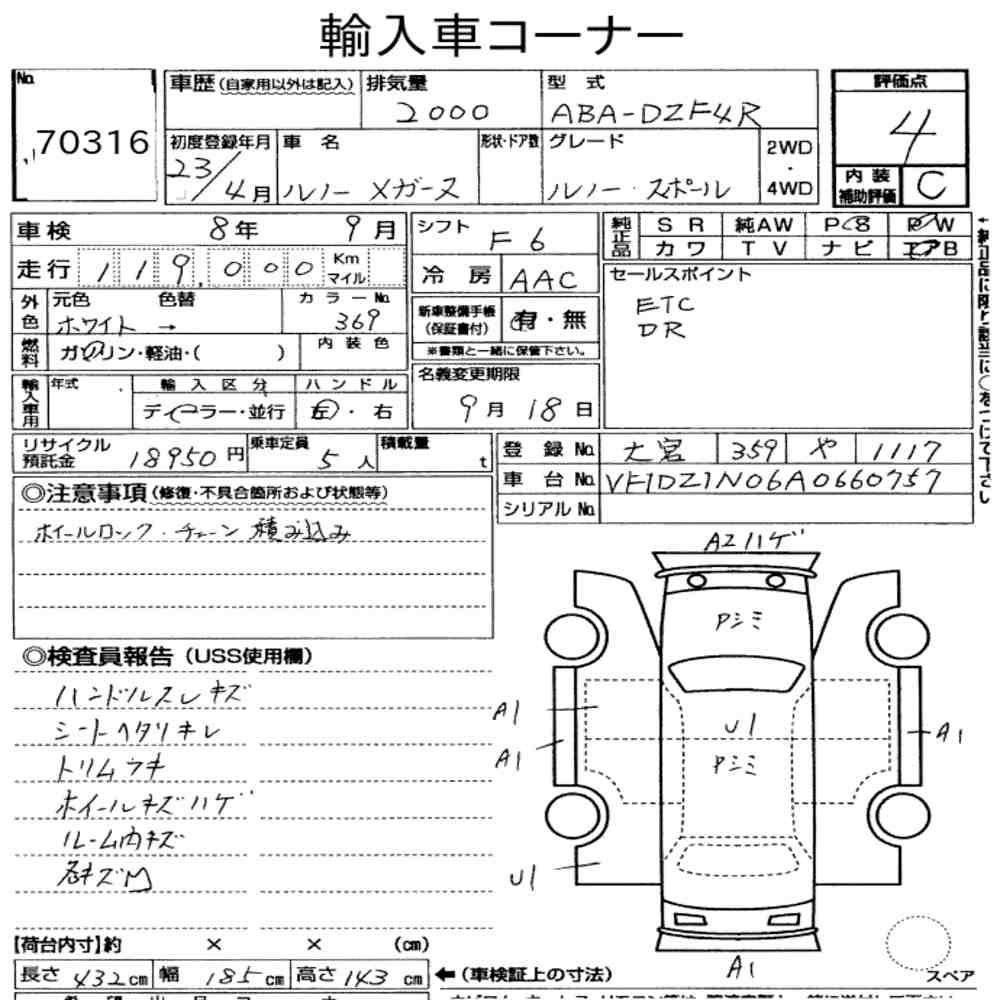 輸入車コーナー
No. 70316
車歴(自家用以外は記入) 排気量 2000 型式 ABA-DZF4R
初度登録年月 23/4月 車名 ルノー メガーヌ 形状・ドア数 グレード ルノー・スポール 2WD・4WD
評価点 4
内装補助評価 C
車検 8年 9月
走行 119,000 Km マイル
外色 元色 ホワイト → 色替 カラーNo. 369
燃料 ガソリン・軽油・( ) 内装色
輸入車用 年式 輸入区分 ディーラー・並行 ハンドル 左・右
シフト F6
冷房 AAC
新車整備手帳(保証書付) 有・無
※書類と一緒に保管下さい。
名義変更期限 9月18日
純正品 SR 純AW PS PW
カワ TV ナビ エアB
セールスポイント
ETC
DR
リサイクル預託金 18950円 乗車定員 5人 積載量 t
登録No. 大宮 359 や 1117
車台No. VF1DZ1N06A0660757
シリアルNo.
◎注意事項(修復・不具合箇所および状態等)
ホイールロック・チェーン積み込み
◎検査員報告(USS使用欄)
ハンドルスレキズ
シートヘタリキレ
トリムウキ
ホイールキズハゲ
ルーム内キズ
A2ハゲ
Pシミ
A1
U1
A1
A1
Pシミ
U1
A1
スペア
【荷台内寸】約 × × (cm)
長さ 432cm 幅 185cm 高さ 143cm ←(車検証上の寸法)